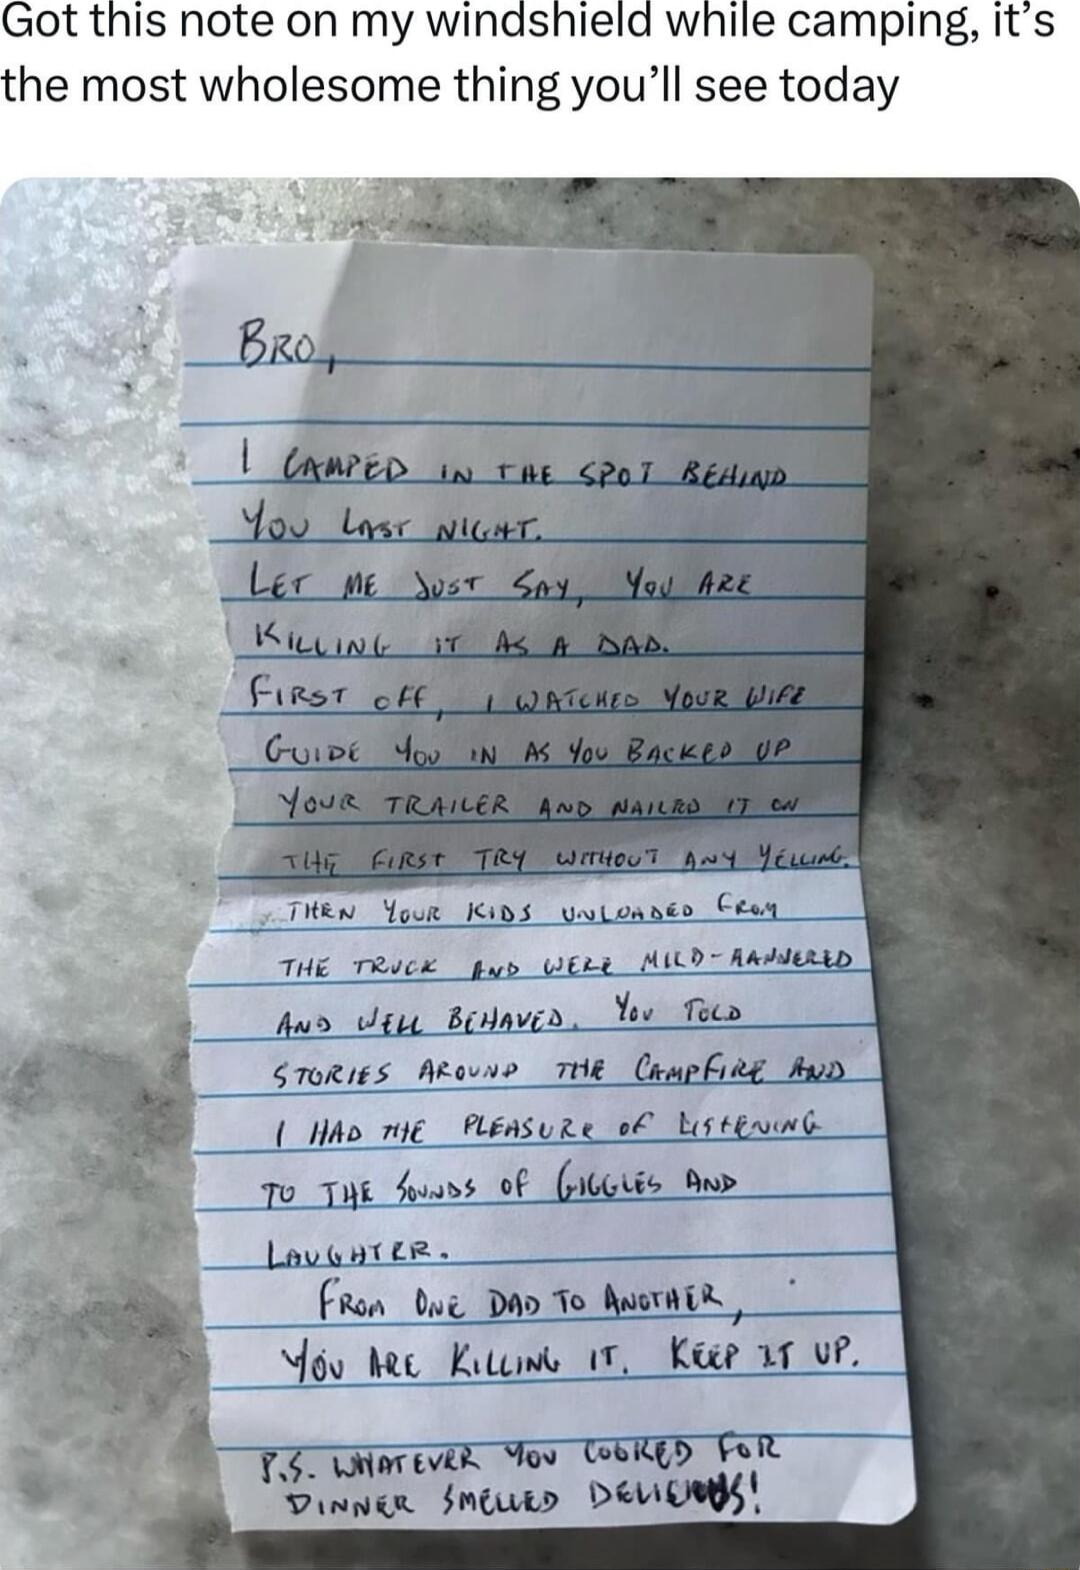 Got this note on my windshield while camping, it’s
the most wholesome thing you’ll see today
BRO,
I CAMPED IN THE SPOT BEHIND
YOU LAST NIGHT.
LET ME JUST SAY, YOU ARE
KILLING IT AS A DAD.
FIRST OFF, I WATCHED YOUR WIFE
GUIDE YOU IN AS YOU BACKED UP
YOUR TRAILER AND NAILED IT ON
THE FIRST TRY WITHOUT ANY YELLING.
THEN YOUR KIDS UNLOADED FROM
THE TRUCK AND WERE MILD-MANNERED
AND WELL BEHAVED. YOU TOLD
STORIES AROUND THE CAMPFIRE AND
I HAD THE PLEASURE OF LISTENING
TO THE SOUNDS OF GIGGLES AND
LAUGHTER.
FROM ONE DAD TO ANOTHER,
YOU ARE KILLING IT. KEEP IT UP.
P.S. WHATEVER YOU COOKED FOR
DINNER SMELLED DELICIOUS!